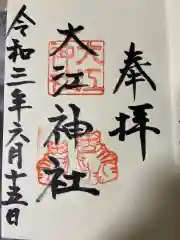 奉拝
大江神社
令和二年六月十五日